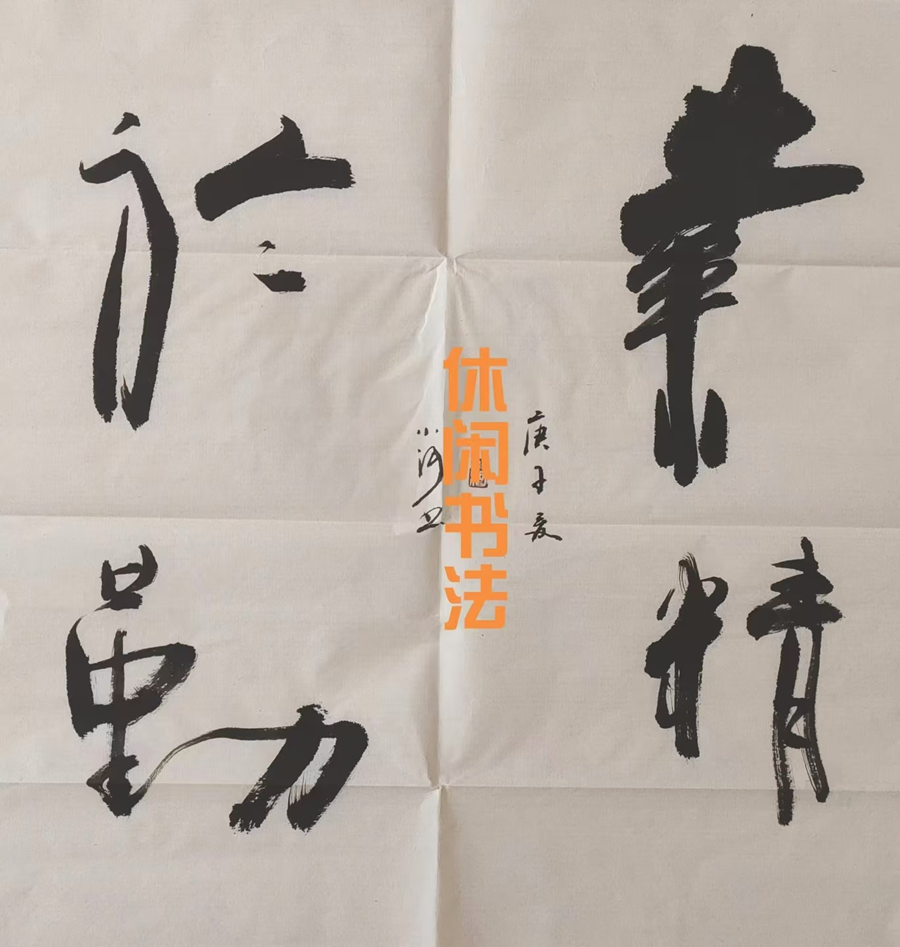 業精
於勤
庚子夏
小河书
休闲书法